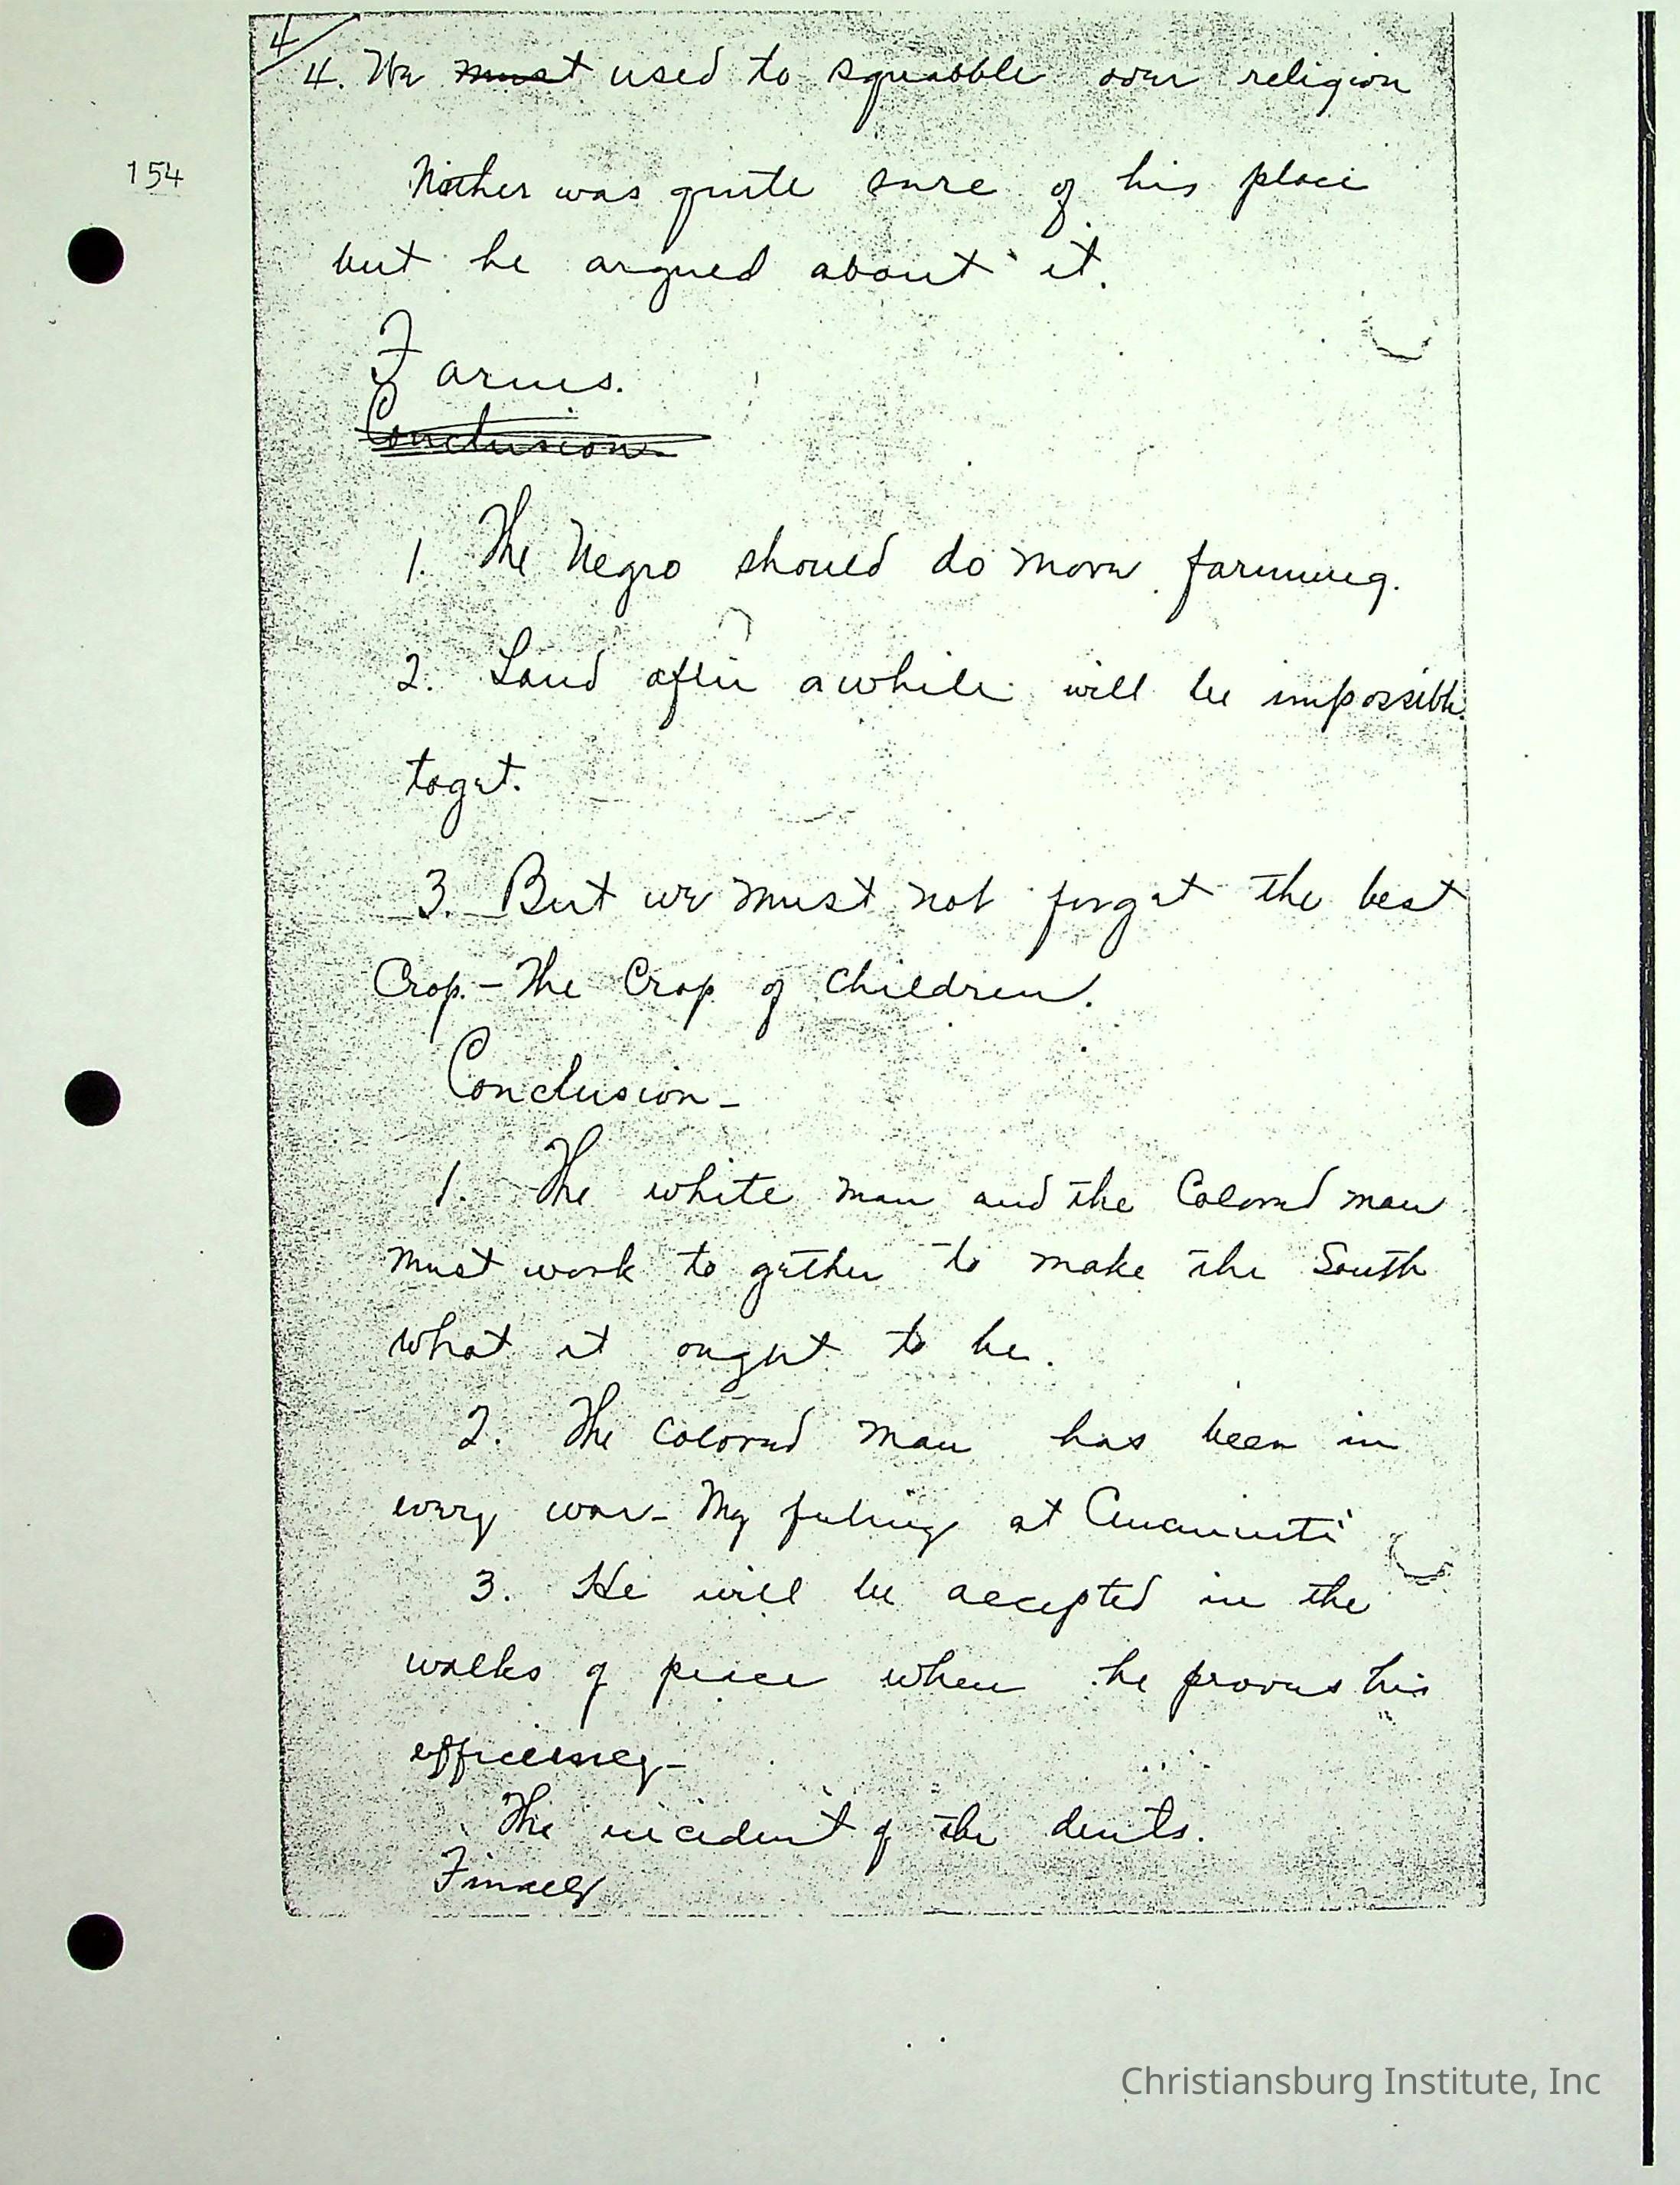 4
4. We must used to squabble over religion
154
Neither was quite sure of his place
but he argued about it.
Farms.
Conclusion.
1. The Negro should do more farming.
2. Land after awhile will be impossible
to get.
3. But we must not forget the best
Crop. - The Crop of children.
Conclusion -
1. The white man and the Colored man
must work to gether to make the South
what it ought to be.
2. The Colored man has been in
every war - My feelings at Cincinnati
3. He will be accepted in the
walks of peace when he proves his
efficiency -
The incident of the dents.
Finally
Christiansburg Institute, Inc